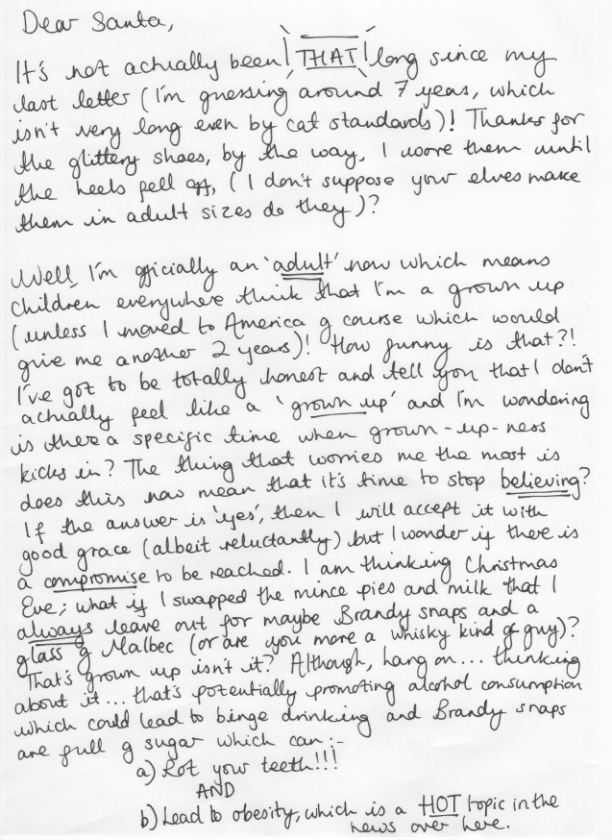 Dear Santa,
It's not actually been THAT long since my
last letter (I'm guessing around 7 years, which
isn't very long even by cat standards)! Thanks for
the glittery shoes, by the way, I wore them until
the heels fell off, (I don't suppose your elves make
them in adult sizes do they)?
Well, I'm officially an 'adult' now which means
children everywhere think that I'm a grown up
(unless I moved to America of course which would
give me another 2 years)! How funny is that?!
I've got to be totally honest and tell you that I don't
actually feel like a 'grown up' and I'm wondering
is there a specific time when grown-up-ness
kicks in? The thing that worries me the most is
does this now mean that it's time to stop believing?
If the answer is 'yes', then I will accept it with
good grace (albeit reluctantly) but I wonder if there is
a compromise to be reached. I am thinking Christmas
Eve; what if I swapped the mince pies and milk that I
always leave out for maybe Brandy snaps and a
glass of Malbec (or are you more a whisky kind of guy)?
That's grown up isn't it? Although, hang on... thinking
about it... that's potentially promoting alcohol consumption
which could lead to binge drinking and Brandy snaps
are full of sugar which can:-
a) Rot your teeth!!!
AND
b) Lead to obesity, which is a HOT topic in the
news over here.